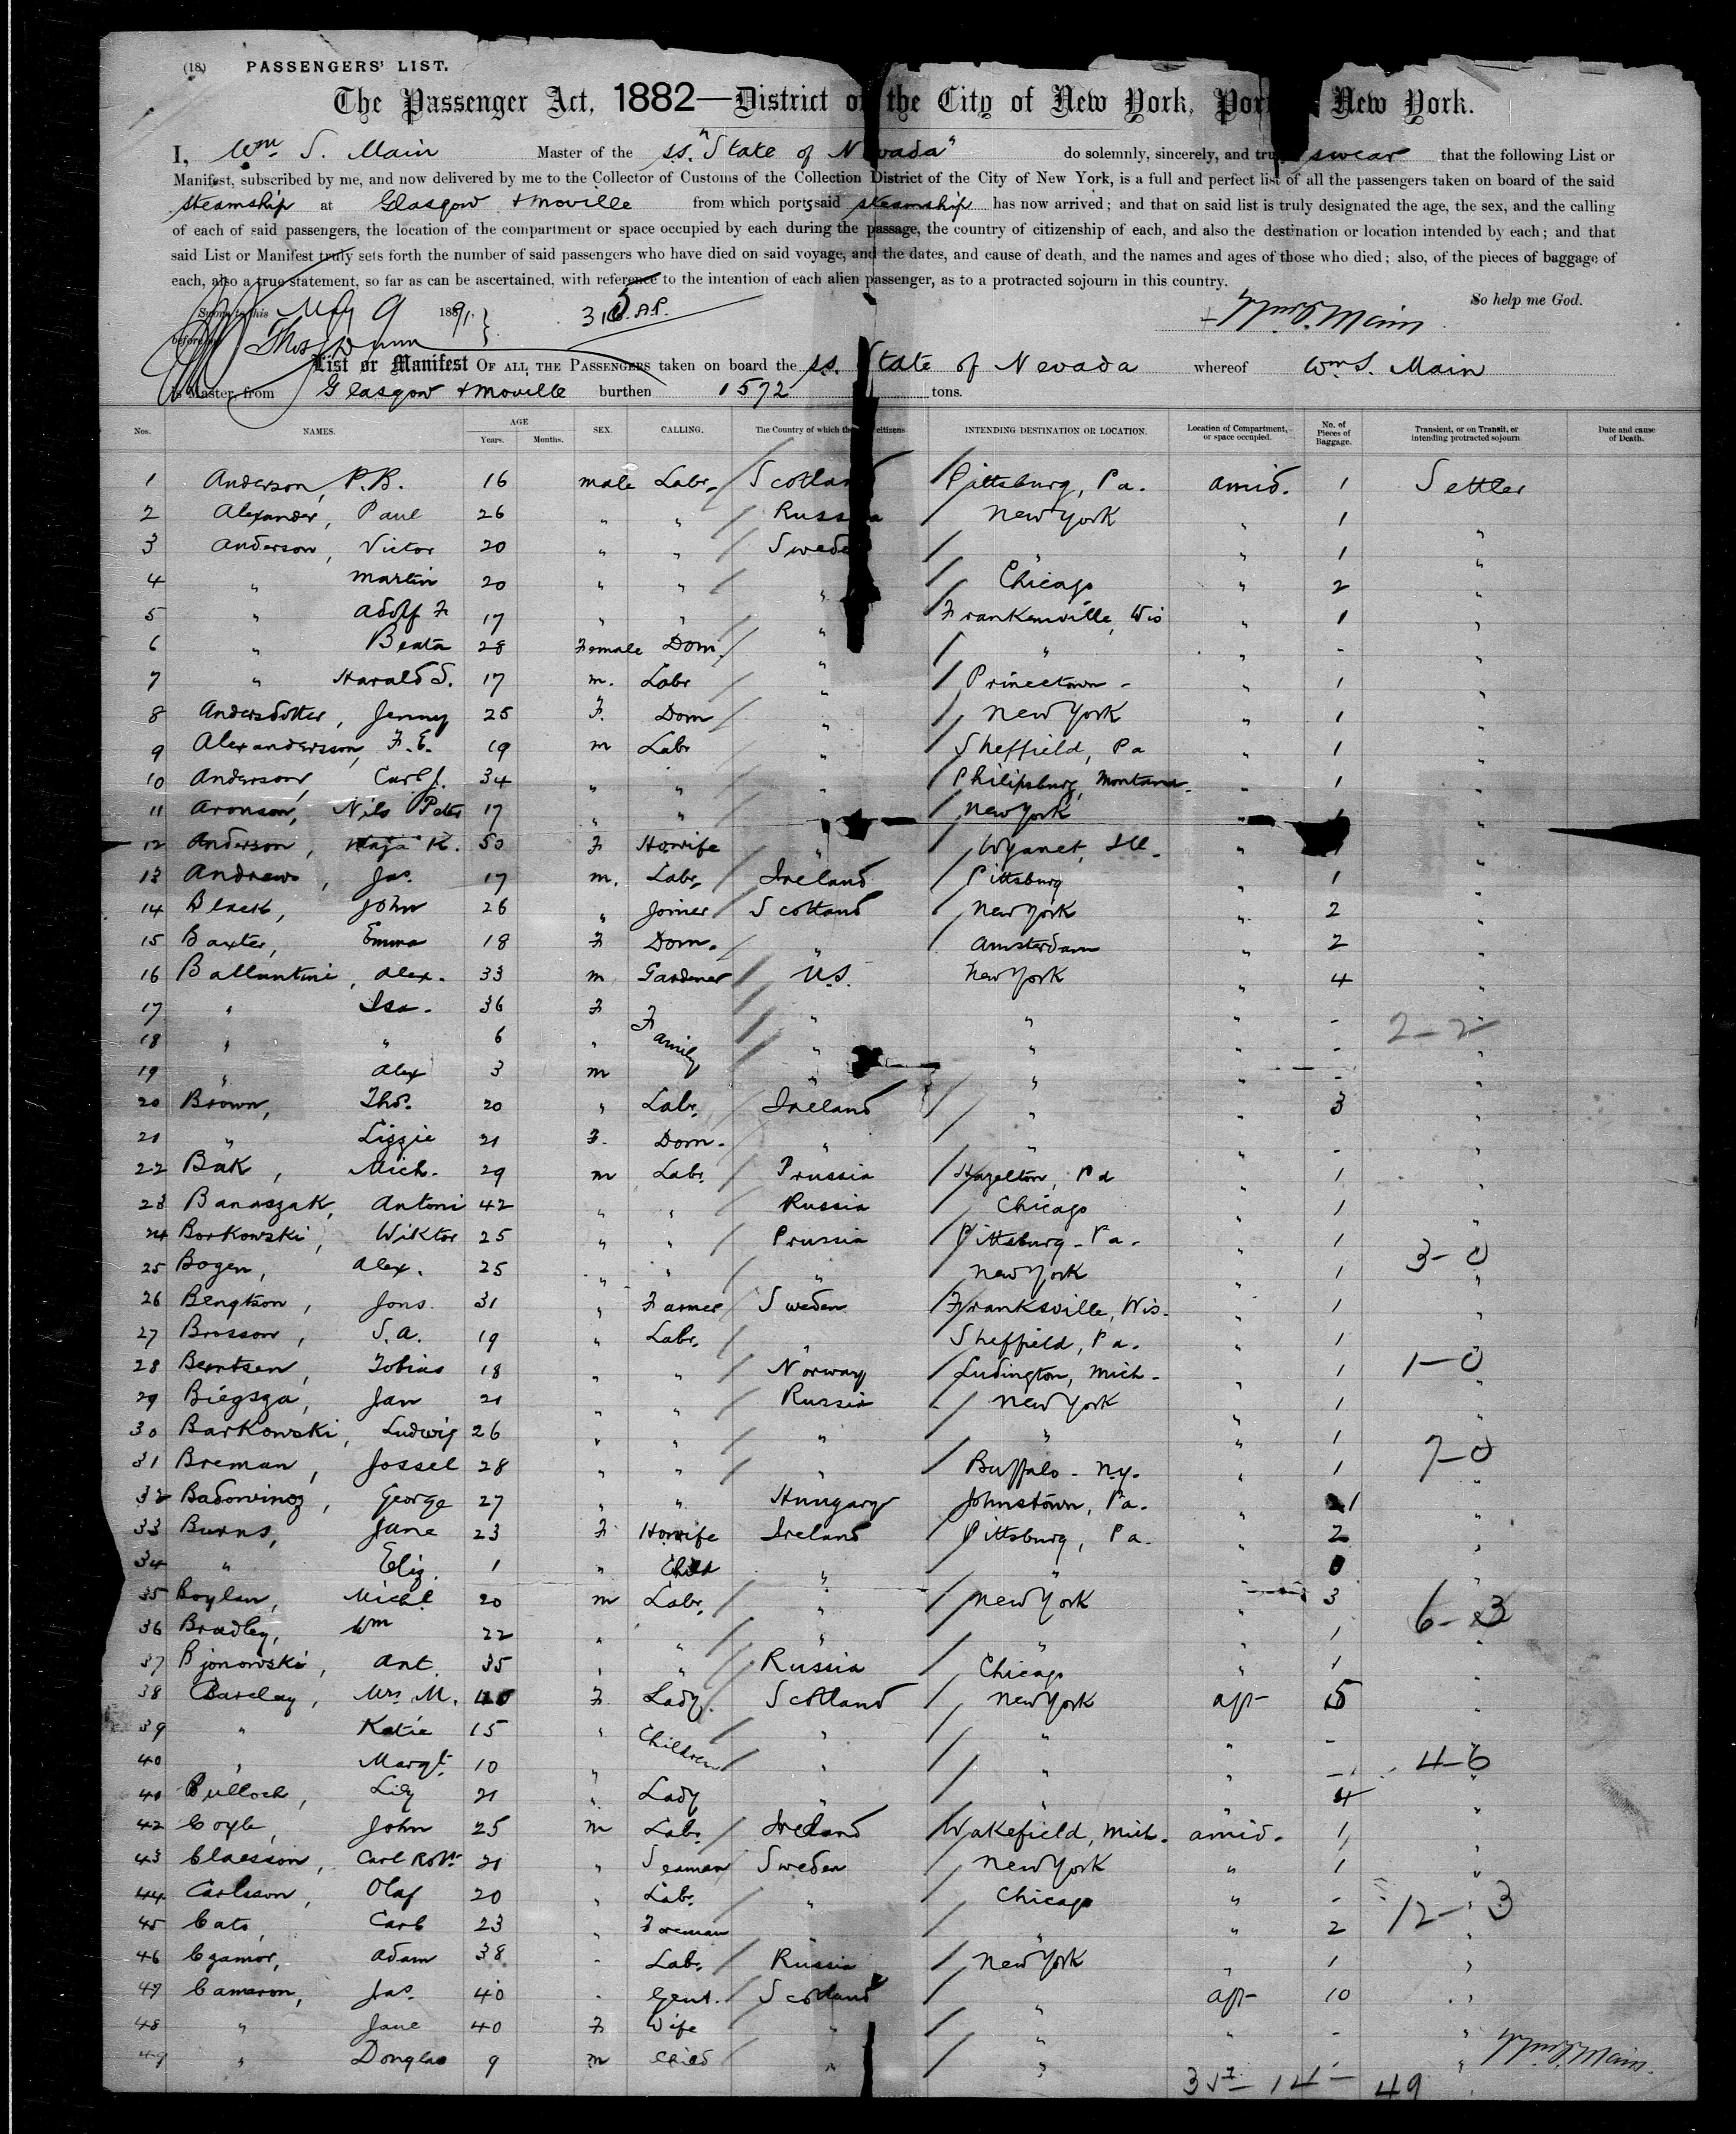 (18) PASSENGERS' LIST.
The Passenger Act, 1882—District of the City of New York, Port New York.
I, Wm S. Main Master of the ss. "State of Nevada" do solemnly, sincerely, and truly swear that the following List or
Manifest, subscribed by me, and now delivered by me to the Collector of Customs of the Collection District of the City of New York, is a full and perfect list of all the passengers taken on board of the said
steamship at Glasgow + Moville from which ports said steamship has now arrived; and that on said list is truly designated the age, the sex, and the calling
of each of said passengers, the location of the compartment or space occupied by each during the passage, the country of citizenship of each, and also the destination or location intended by each; and that
said List or Manifest truly sets forth the number of said passengers who have died on said voyage, and the dates, and cause of death, and the names and ages of those who died; also, of the pieces of baggage of
each, also a true statement, so far as can be ascertained, with reference to the intention of each alien passenger, as to a protracted sojourn in this country.
So help me God.
Sworn to this May 9 1891.
Wm S. Main
before me Thos Dunn
List or Manifest OF ALL THE PASSENGERS taken on board the ss. State of Nevada whereof Wm S. Main
is Master, from Glasgow + Moville burthen 1572 tons.
Nos. NAMES. AGE Years. Months. SEX. CALLING. The Country of which they citizens. INTENDING DESTINATION OR LOCATION. Location of Compartment, or space occupied. No. of Pieces of Baggage. Transient, or on Transit, or intending protracted sojourn. Date and cause of Death.
1 Anderson, P.B. 16 male Labr. Scotland Pittsburg, Pa. amid. 1 Settler
2 Alexander, Paul 26 " " Russia New York " 1 "
3 Anderson, Victor 20 " " Sweden " " 1 "
4 " Martin 20 " " " Chicago " 2 "
5 " Adolf F 17 " " " Frankenville, Wis " 1 "
6 " Beata 28 Female Dom. " " " - "
7 " Harald S. 17 m. Labr " Princetown - " 1 "
8 Andersdotter, Jenny 25 F. Dom " New York " 1 "
9 Alexandersson, F.E. 19 m Labr " Sheffield, Pa " 1 "
10 Anderson, Carl J. 34 " " " Philipsburg, Montana. " 1 "
11 Aronson, Nils Peter 17 " " " New York " 1 "
12 Anderson, Maja K. 50 F Howife " Wyanet, Ill. " 1 "
13 Andrews, Jas. 17 m. Labr. Ireland Pittsburg " 1 "
14 Black, John 26 " Joiner Scotland New York " 2 "
15 Baxter, Emma 18 F Dom. " Amsterdam " 2 "
16 Ballantini, Alex. 33 m Gardener U.S. New York " 4 "
17 " Isa. 36 F Family " " " - " 2-2
18 " " 6 " " " " - "
19 " Alex 3 m " " " - "
20 Brown, Thos. 20 " Labr. Ireland " " 3 "
21 " Lizzie 21 F. Dom. " " " - "
22 Bak, Mich. 29 m Labr. Prussia Hazelton, Pa " 1 "
23 Banaszak, Antoni 42 " " Russia Chicago " 1 "
24 Borkowski, Wiktor 25 " " Prussia Pittsburg - Pa. " 1 " 3-0
25 Bogen, Alex. 25 " " " New York " 1 "
26 Bengtson, Jons. 31 " Farmer Sweden Franksville, Wis. " 1 "
27 Brosson, S.A. 19 " Labr. " Sheffield, Pa. " 1 "
28 Berntsen, Tobias 18 " " Norway Ludington, Mich. " 1 " 1-0
29 Biegsza, Jan 21 " " Russia New York " 1 "
30 Barkowski, Ludwig 26 " " " " " 1 "
31 Breman, Jossel 28 " " " Buffalo - N.Y. " 1 " 7-0
32 Badowinoz, George 27 " " Hungary Johnstown, Pa. " 1 "
33 Burns, Jane 23 F Howife Ireland Pittsburg, Pa. " 2 "
34 " Eliz. 1 " Child " " 0 "
35 Boylan, Michl. 20 m Labr. " New York " 3 "
36 Bradley, Wm 22 " " " " " 1 " 6-3
37 Bjonowski, Ant. 35 " " Russia Chicago " 1 "
38 Barclay, Mrs. M. 40 F. Lady. Scotland New York apt- 5 "
39 " Katie 15 " Children " " " - "
40 " Margt. 10 " " " " - " 4-6
41 Bulloch, Lily 21 " Lady " " " 4 "
42 Coyle, John 25 m Labr. Ireland Wakefield, Mich. amid. 1 "
43 Claesson, Carl Robt 21 " Seaman Sweden New York " 1 "
44 Carlsson, Olaf 20 " Labr. " Chicago " - " 12-3
45 Cato, Carl 23 " Foreman " " " 2 "
46 Czamor, Adam 38 " Labr. Russia New York " 1 "
47 Cameron, Jas. 40 " Gent. Scotland " apt- 10 "
48 " Jane 40 F Wife " " " - "
49 " Douglas 9 m Child " " - "
Wm S. Main.
14 - 49